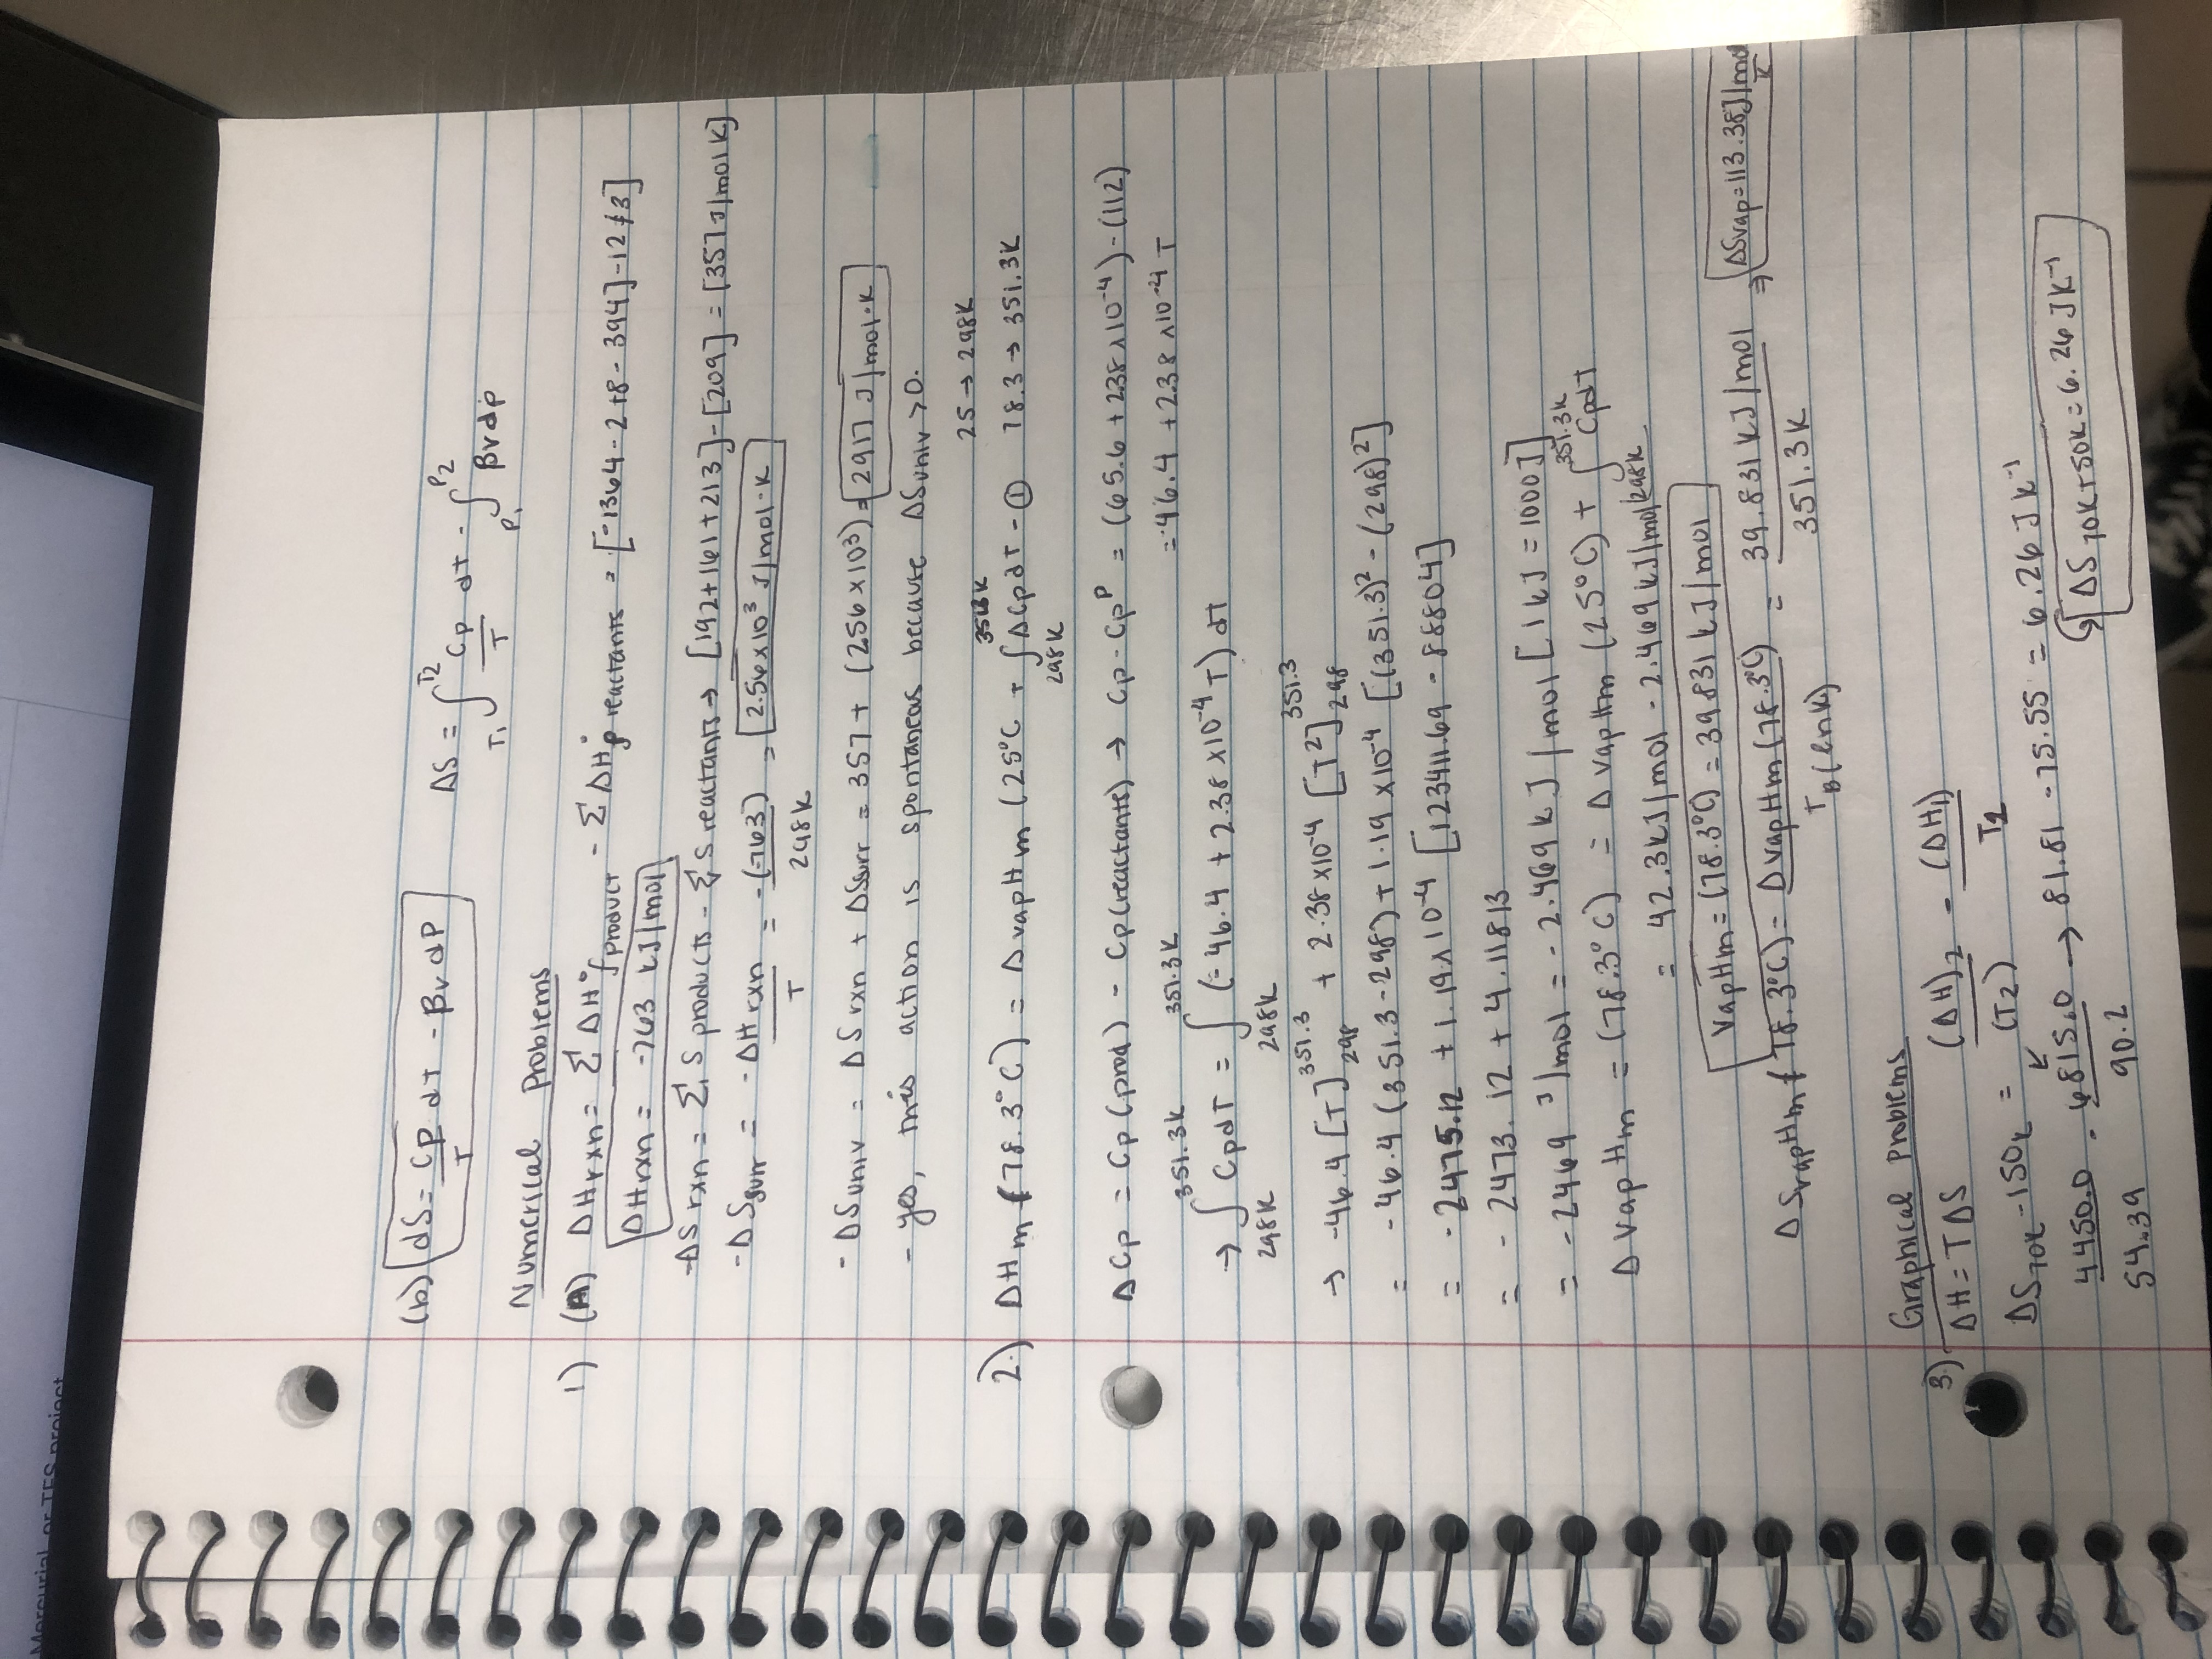 Mercurial, or TFS project
(b) dS = Cp/T dT - βv dP   ΔS = ∫T1^T2 Cp/T dT - ∫P1^P2 βv dp
Numerical Problems
1) (A) ΔHrxn = Σ ΔH°f product - Σ ΔH°f reactants = [-1364 - 2 +8 - 394] -
ΔHrxn = -763 kJ/mol
-ΔS rxn = Σ S products - Σ S reactants → [192+161+213] - [209] = [357 J/mol K]
-ΔSsurr = -ΔHrxn/T = -(-763)/298K = 2.56x10³ J/mol·K
- ΔSuniv = ΔS rxn + ΔSsurr = 357 + (256x10³) = 2917 J/mol·K
- yes, this action is spontaneas because ΔSuniv > 0.
25 → 298K
2.) ΔHm (78.3°C) = ΔvapHm (25°C + ∫298K^351.3K ΔCpdT - ① 78.3 → 351.3K
ΔCp = Cp (prod) - Cp (reactants) → Cp - Cp^P = (65.6 + 2.38 x10⁻⁴) - (112)
= -46.4 + 2.38 x10⁻⁴ T
→ ∫298K^351.3K CpdT = ∫298K^351.3K (-46.4 + 2.38 x10⁻⁴ T) dT
→ -46.4 [T]298^351.3 + 2.38 x10⁻⁴ [T²]298^351.3
= -46.4 (351.3-298) + 1.19 x10⁻⁴ [(351.3)² - (298)²]
= -2475.12 + 1.19x10⁻⁴ [123411.69 - 88804]
= -2473.12 + 4.11813
= -2469 J/mol = -2.469 kJ/mol [1 kJ = 1000J]
Δ vap Hm = (78.3°C) = Δ vap Hm (25°C) + ∫298K^351.3K CpdT
= 42.3kJ/mol - 2.469 kJ/mol
VapHm = (78.3°C) = 39.831 kJ/mol
ΔSvapHm (78.3°C) = ΔvapHm (78.3°C)/TB(enK) = 39.831 kJ/mol/351.3K ⇒ ΔSvap = 113.38J/mol K
Graphical Problems
3.) ΔH = TΔS   (ΔH)2/(T2) - (ΔH1)/T2
ΔS70K-150K =
4450.0/54.39 - 6815.0/90.2 → 81.81 - 75.55 = 6.26 J K⁻¹
ΔS 70K+50K = 6.26 JK⁻¹